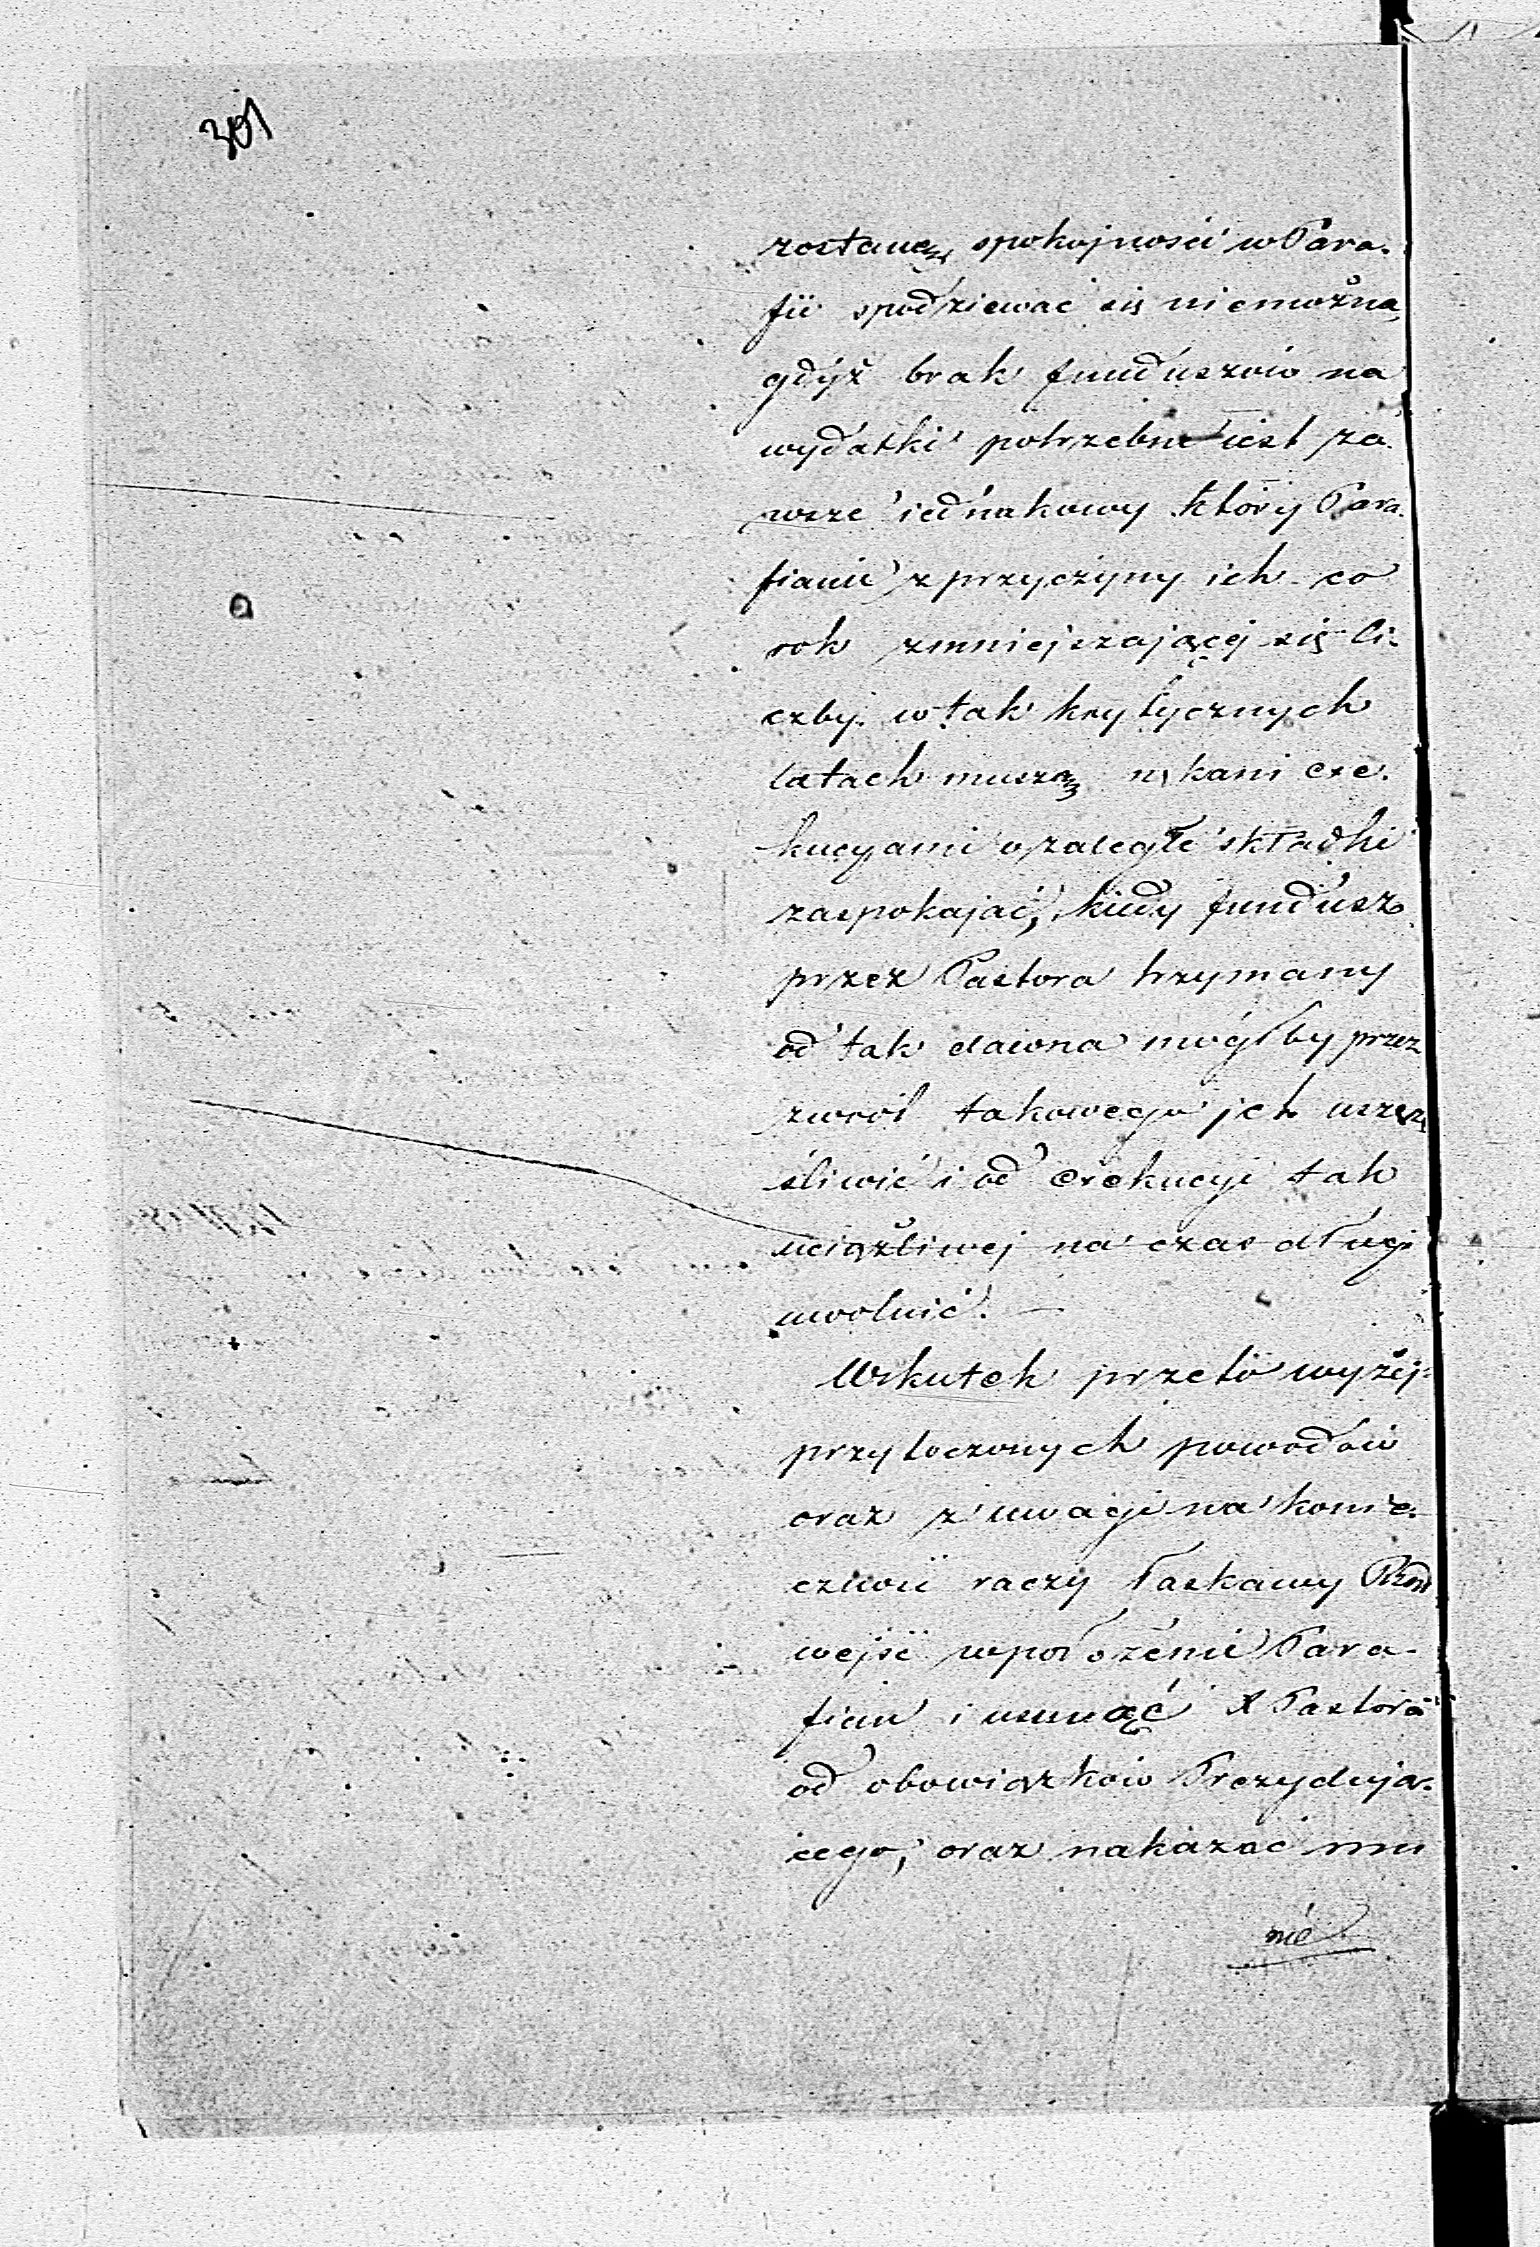 301
zostaną, spokojności w Para-
fii spodziewać się niemożna,
gdyż brak funduszów na
wydatki potrzebne iest za
wsze iednakowy który Para-
fianie z przyczyny ich co
rok zmniejszającéj się li-
czby w tak krytycznych
latach muszą nękani exe-
kucyami o zaległe składki
zaspokajać, kiedy fundusz
przez Pastora trzymany
od tak dawna mógłby przez
zwrót takowego ich uszczę
śliwić i od exekucyi tak
uciążliwej na czas długi
uwolnić. —
Wskutek przeto wyżej
przytoczonych powodów
oraz z uwagi na konie-
czność raczy Łaskawy Rząd
wejść w położenie Para-
fian i usunąć X Pastora
od obowiązków Prezydują-
cego, oraz nakazać mu
nie